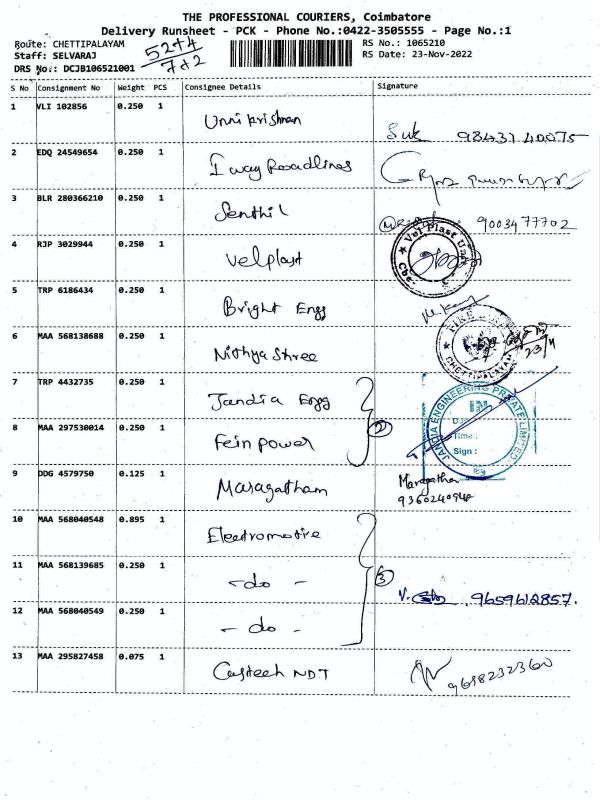 THE PROFESSIONAL COURIERS, Coimbatore
Delivery Runsheet - PCK - Phone No.:0422-3505555 - Page No.:1
Route: CHETTIPALAYAM RS No.: 1065210
Staff: SELVARAJ 52+4 RS Date: 23-Nov-2022
DRS No.: DCJB106521001 7+2
S No Consignment No Weight PCS Consignee Details Signature
1 VLI 102856 0.250 1 Unni Krishnan
98437 40075
2 EDQ 24549654 0.250 1 I way Roadlines
3 BLR 280366210 0.250 1 Senthil 9003477702
4 RJP 3029944 0.250 1 Velplast Vel Plast
5 TRP 6186434 0.250 1 Bright Engg
6 MAA 568138688 0.250 1 Nithya Shree CHETTIPALAYAM
7 TRP 4432735 0.250 1 Jandia Engg JANDIA ENGINEERING PRIVATE LIMITED
8 MAA 297530014 0.250 1 Fein power 2 Time : Sign :
9 DDG 4579750 0.125 1 Maragatham Maragatha
9360240940
10 MAA 568040548 0.895 1 Electromotive
11 MAA 568139685 0.250 1 -do- 3 9659612857.
12 MAA 568040549 0.250 1 -do-
13 MAA 295827458 0.075 1 Casteeh NDT 9698232360